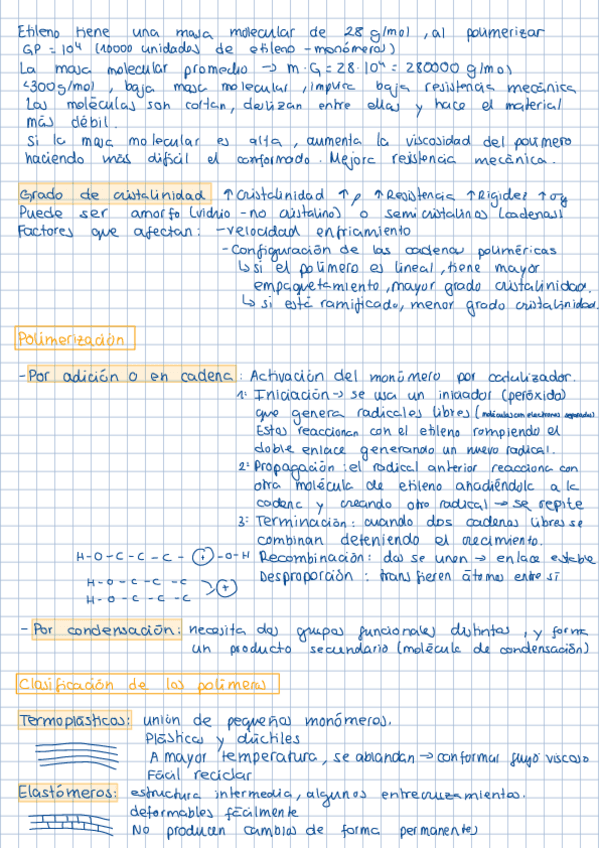 Etileno tiene una masa molecular de 28 g/mol, al polimerizar
GP = 10⁴ (10000 unidades de etileno - monómeros)
La masa molecular promedio → m·G = 28·10⁴ = 280000 g/mol
<300g/mol, baja masa molecular, impura baja resistencia mecánica
Las moléculas son cortan, deslizan entre ellas y hace el material
más débil.
Si la masa molecular es alta, aumenta la viscosidad del polímero
haciendo más difícil el conformado. Mejora resistencia mecánica.
Grado de cristalinidad ↑Cristalinidad ↑ρ ↑Resistencia ↑Rigidez ↑σy
Puede ser amorfo (vidrio - no cristalino) o semicristalinos (cadenas)
Factores que afectan: - velocidad enfriamiento
- Configuración de las cadenas poliméricas
↳ si el polímero es lineal, tiene mayor
empaquetamiento, mayor grado cristalinidad.
↳ si está ramificado, menor grado cristalinidad.
Polimerización
- Por adición o en cadena: Activación del monómero por catalizador.
1º Iniciación → se usa un iniciador (peróxido)
que genera radicales libres (moléculas con electrones)
Estos reaccionan con el etileno rompiendo el
doble enlace generando un nuevo radical.
2º Propagación: el radical anterior reacciona con
otra molécula de etileno añadiéndola a la
cadena y creando otro radical → se repite
3º Terminación: cuando dos cadenas libres se
combinan deteniendo el crecimiento.
H-O-C-C-C-(+)-O-H Recombinación: dos se unen → enlace estable
H-O-C-C-C Desproporción: transfieren átomos entre sí
H-O-C-C-C >(+)
- Por condensación: necesita dos grupos funcionales distintos, y forma
un producto secundario (molécula de condensación)
Clasificación de los polímeros
Termoplásticos: unión de pequeños monómeros.
Plásticos y dúctiles
A mayor temperatura, se ablandan → conformar flujo viscoso
Fácil reciclar
Elastómeros: estructura intermedia, algunos entrecruzamientos.
deformables fácilmente
No producen cambios de forma permanentes